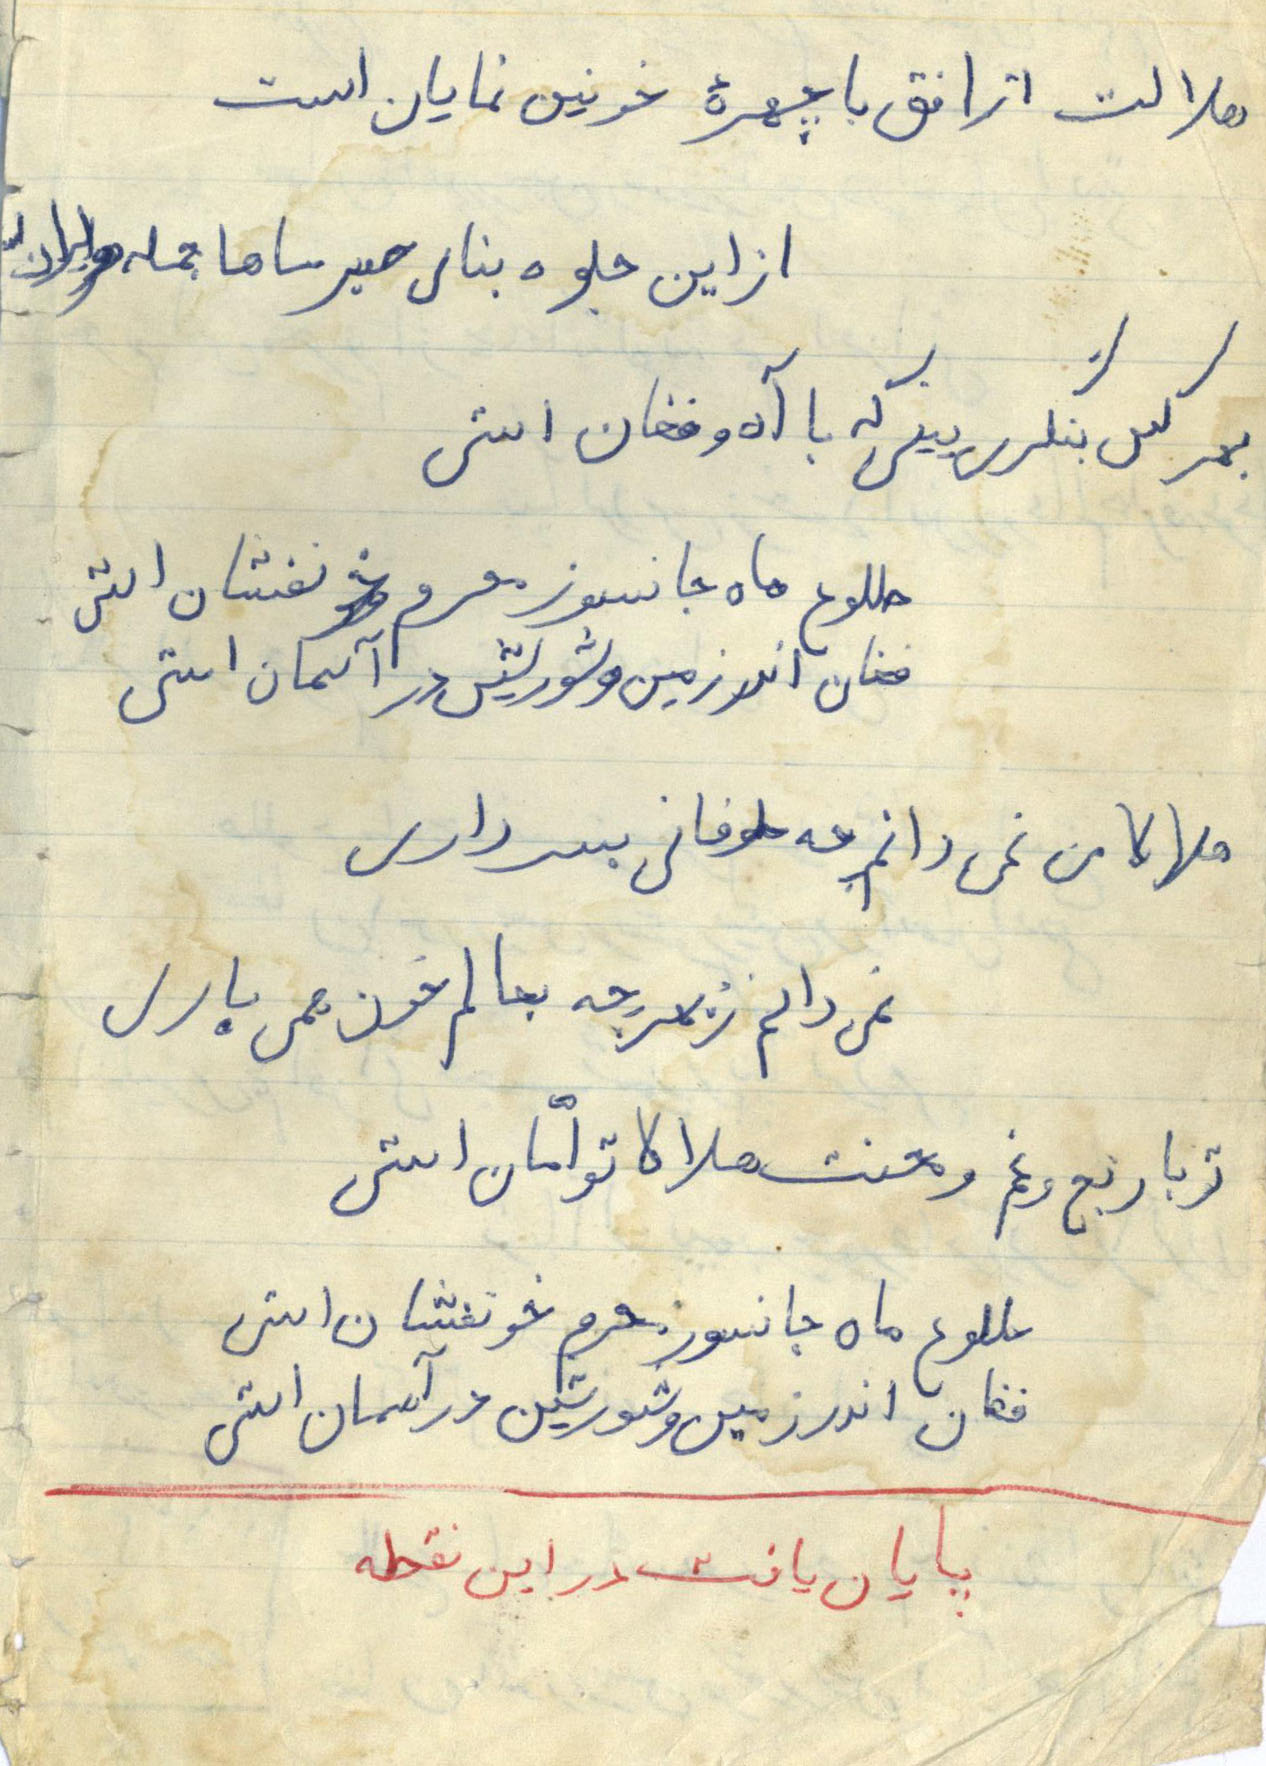 هلالت از افق با چهرهٔ خونین نمایان است
از این جلوه بنای صبر ساها جمله ویران
بهر کس بنگری بینی که با آه و فغان استی
طلوع ماه جانسوز محرم خونفشان استی
فغان اندر زمین و شورشین در آسمان استی
هلالا من نمی دانم چه طوفانی بسر داری
نمی دانم ز بهر چه بعالم خون همی باری
تو با رنج و غم و محنت هلالا توأمان استی
طلوع ماه جانسوز محرم خونفشان استی
فغان اندر زمین و شورشین در آسمان استی
پایان یافت در این نقطه